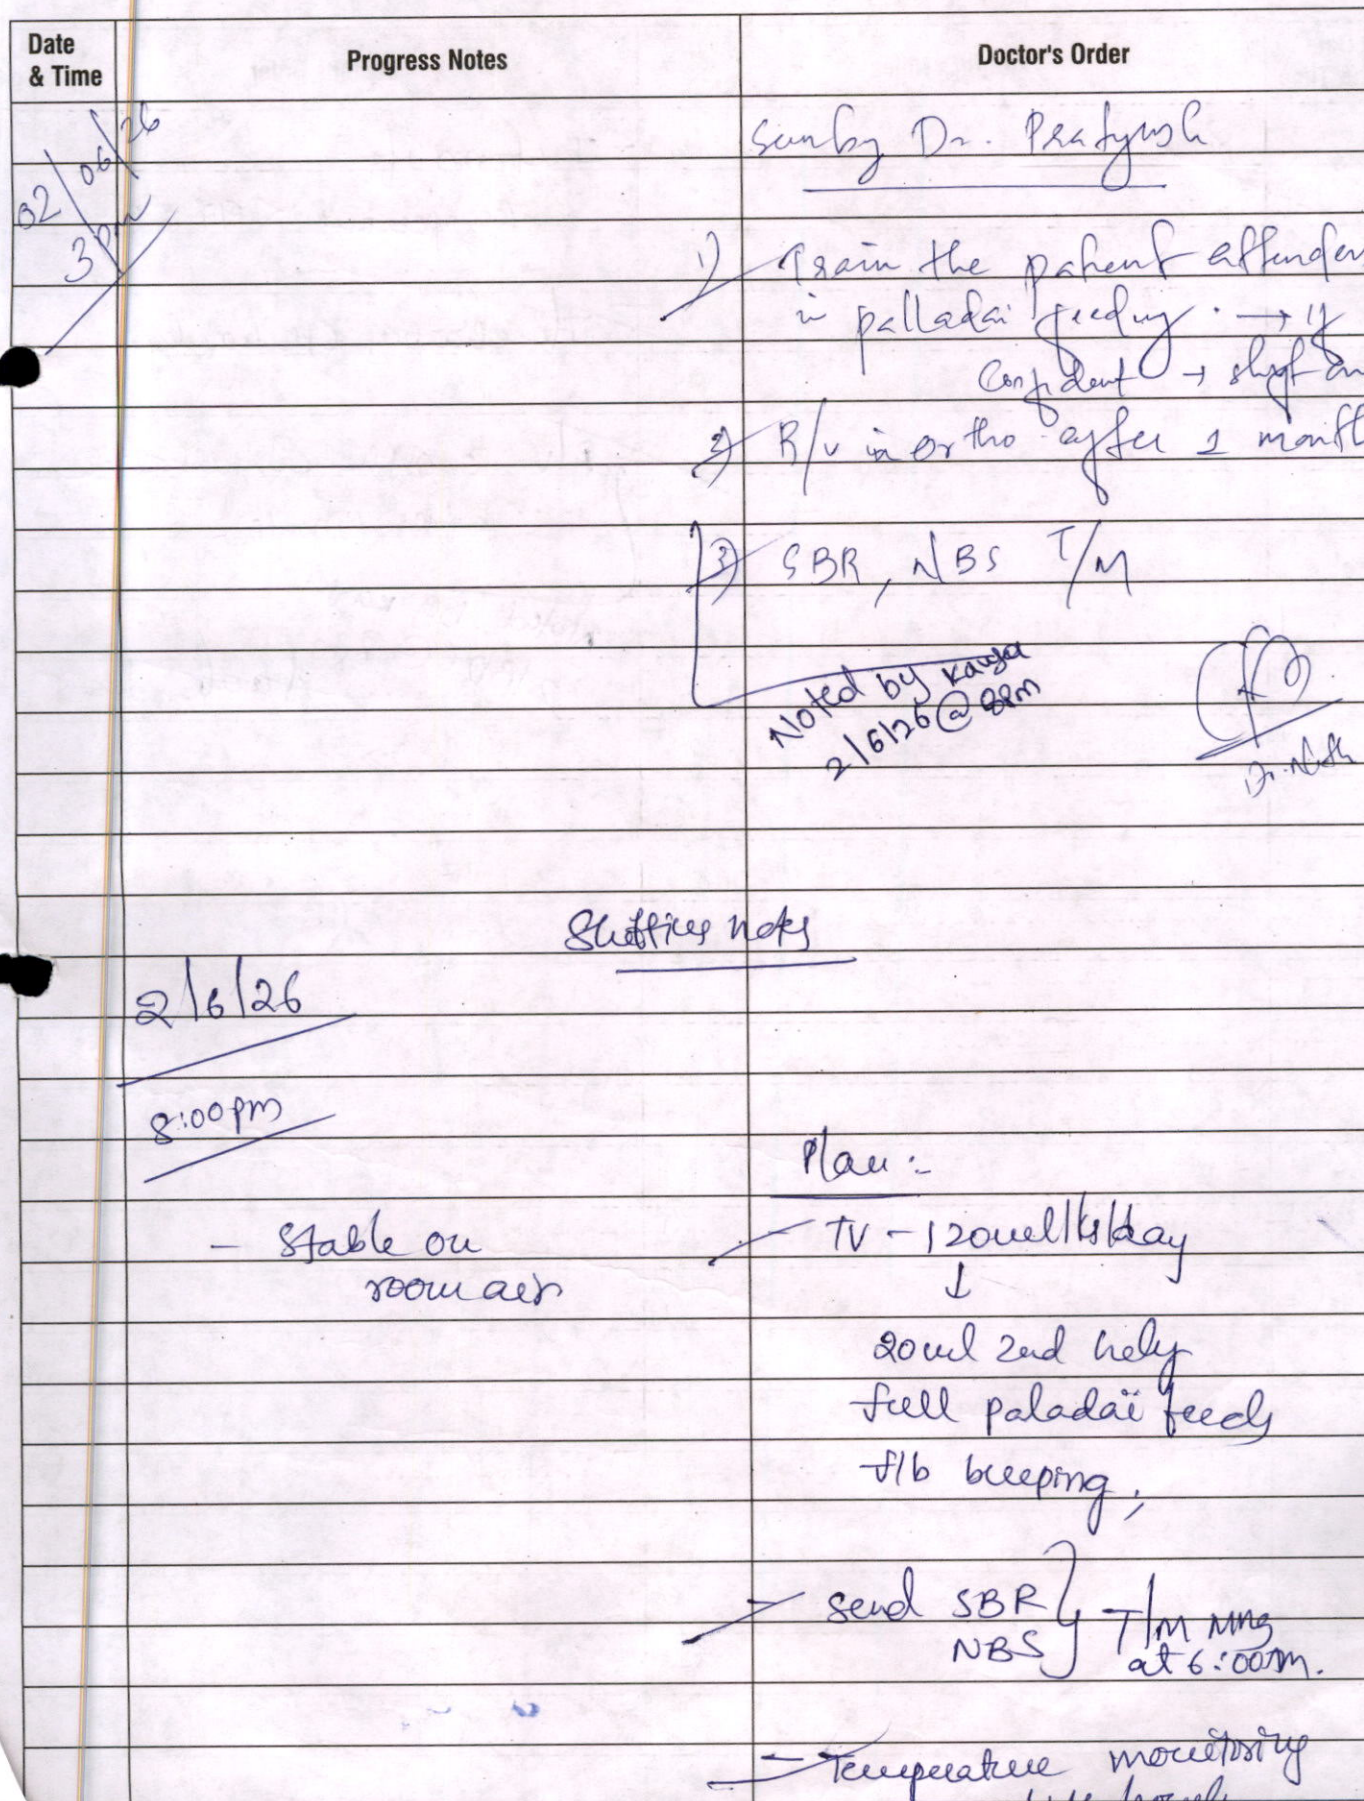 Date
& Time
Progress Notes
Doctor's Order
02/06/26
3pm
Seen by Dr. Pratyush
1) Train the patient attender
in palladai feeding. → if
Confident → shift
2) R/v in ortho after 1 month
3) SBR, NBS T/M
Noted by
2/6/26 @
Dr.
Shifting notes
2/6/26
8:00pm
Plan:-
- Stable on
room air
- TV - 120ml/kg/day
↓
20ml 2nd hrly
full paladai feeds
f/b burping;
- send SBR
NBS } T/M Mng
at 6:00am.
- Temperature monitoring